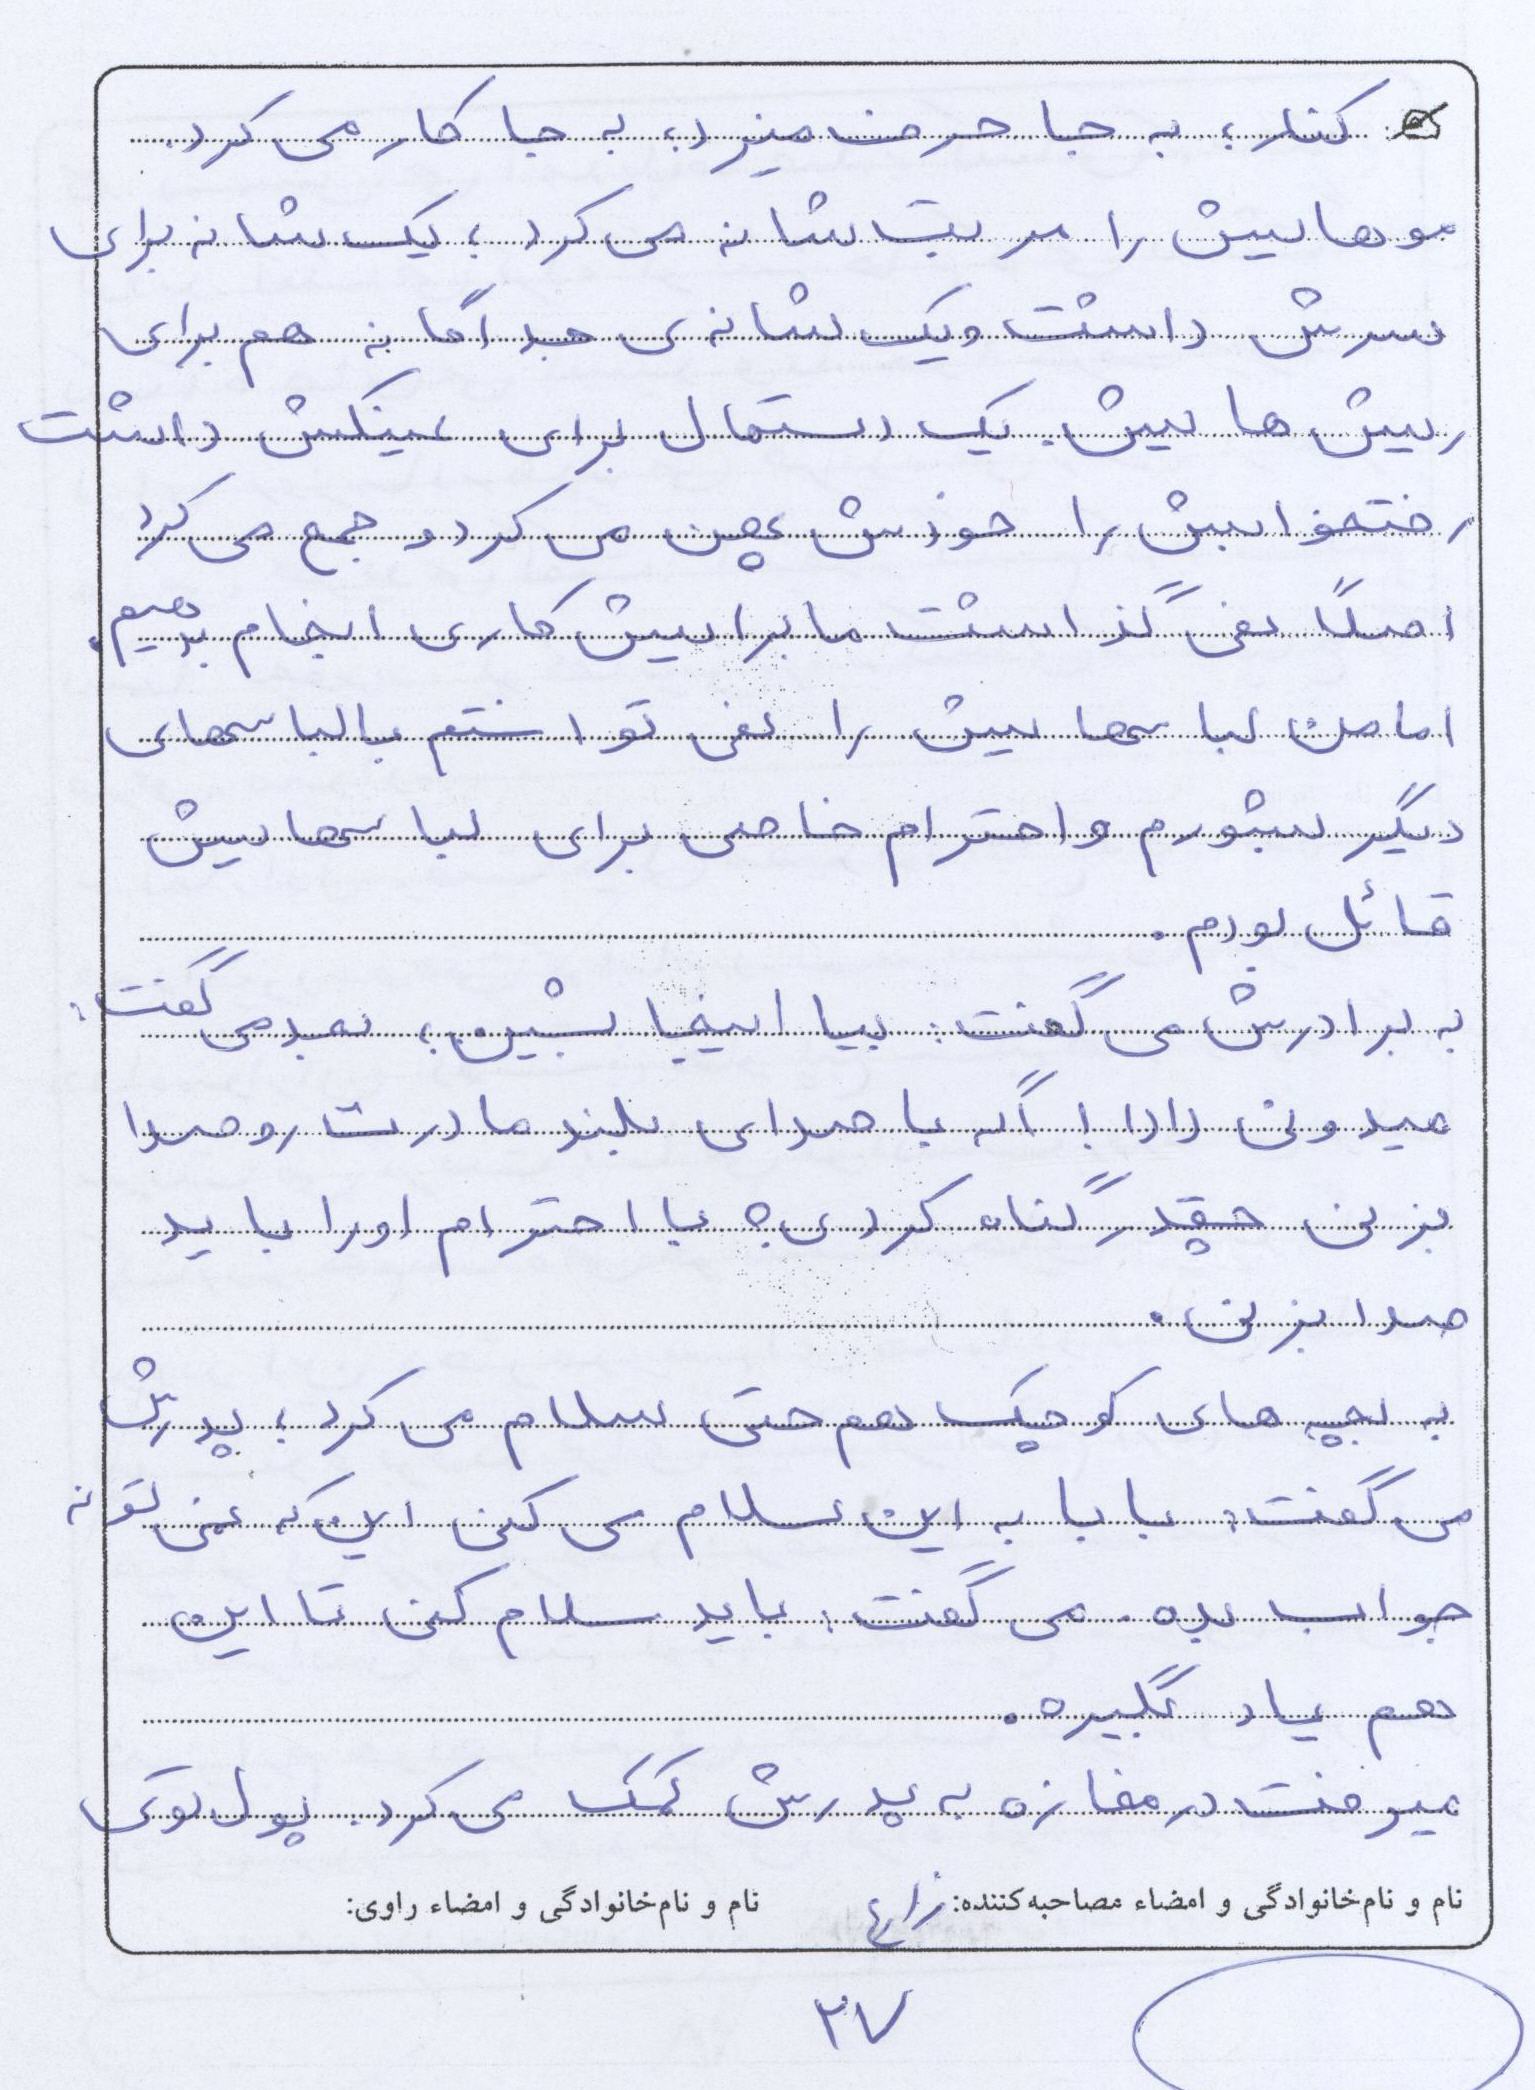 کنار؛ به جا حرف میزد، به جا کار می کرد.
موهاییش را مرتب شانه می کرد؛ یک شانه برای
سرش داشت و یک شانه ی جداگانه هم برای
ریش هاییش. یک دستمال برای عینکش داشت
رختخوابش را خودش پهن می کرد و جمع می کرد
اصلاً نمی گذاشت ما براییش کاری انجام بدهیم.
اما من لباسهاییش را نمی توانستم با لباسهای
دیگر بشورم و احترام خاصی برای لباسهاییش
قائل بودم.
به برادرش می گفت: بیا اینجا بشین؛ بعد می گفت:
میدونی دادا! اگه با صدای بلند مادرت رو صدا
بزنی چقدر گناه کردی؟ با احترام او را باید
صدا بزنی.
به بچه های کوچیک هم حتی سلام می کرد؛ پدرش
می گفت: بابا به این سلام می کنی این که نمی تونه
جواب بده. می گفت: باید سلام کنی تا این
هم یاد بگیره.
میرفت در مغازه به پدرش کمک می کرد. پول توی
نام و نام‌خانوادگی و امضاء مصاحبه‌کننده: زارع نام و نام‌خانوادگی و امضاء راوی:
۲۷